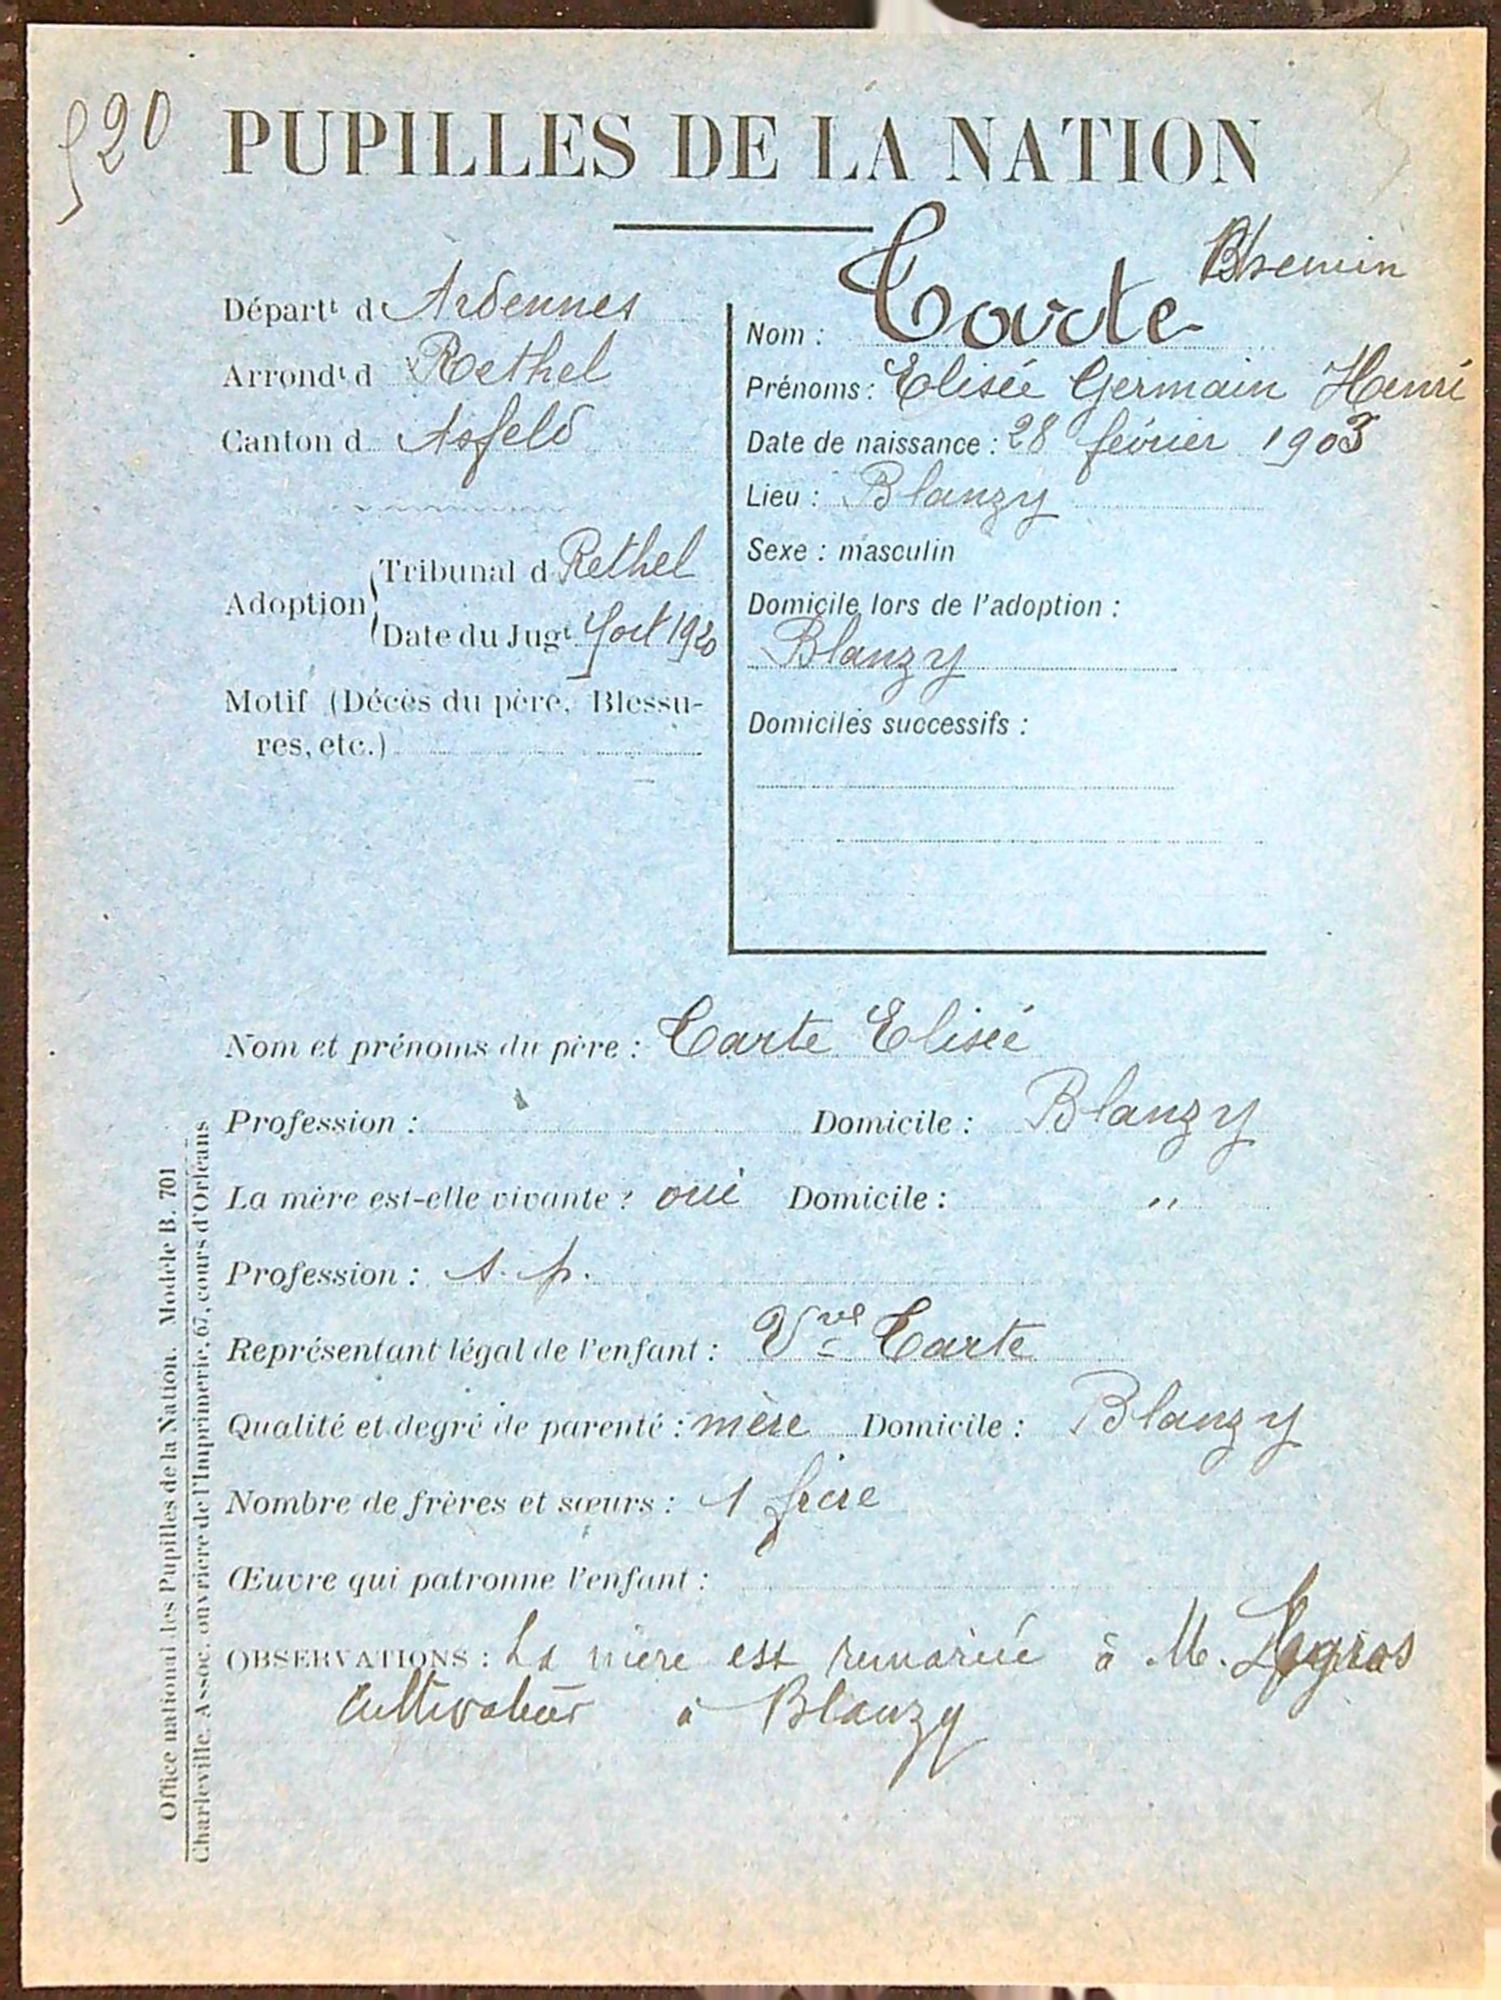 520
PUPILLES DE LA NATION
Départt d Ardennes
Arrondt d Rethel
Canton d Asfeld
Adoption
Tribunal d Rethel
Date du Jugt 1920
Motif (Décès du père, Blessu-
res, etc.)
Nom : Carte
Prénoms : Elisée Germain Henri
Date de naissance : 28 février 1903
Lieu : Blanzy
Sexe : masculin
Domicile lors de l'adoption :
Blanzy
Domiciles successifs :
Nom et prénoms du père : Carte Elisée
Profession : Domicile : Blanzy
La mère est-elle vivante ? oui Domicile : "
Profession : s. p.
Représentant légal de l'enfant : Vve Carte
Qualité et degré de parenté : mère Domicile : Blanzy
Nombre de frères et sœurs : 1 frère
Œuvre qui patronne l'enfant :
OBSERVATIONS : La mère est remariée à M. Legros
Cultivateur à Blanzy
Office national des Pupilles de la Nation. Modèle B. 701
Charleville. Assoc. ouvrière de l'Imprimerie, 67, cours d'Orléans